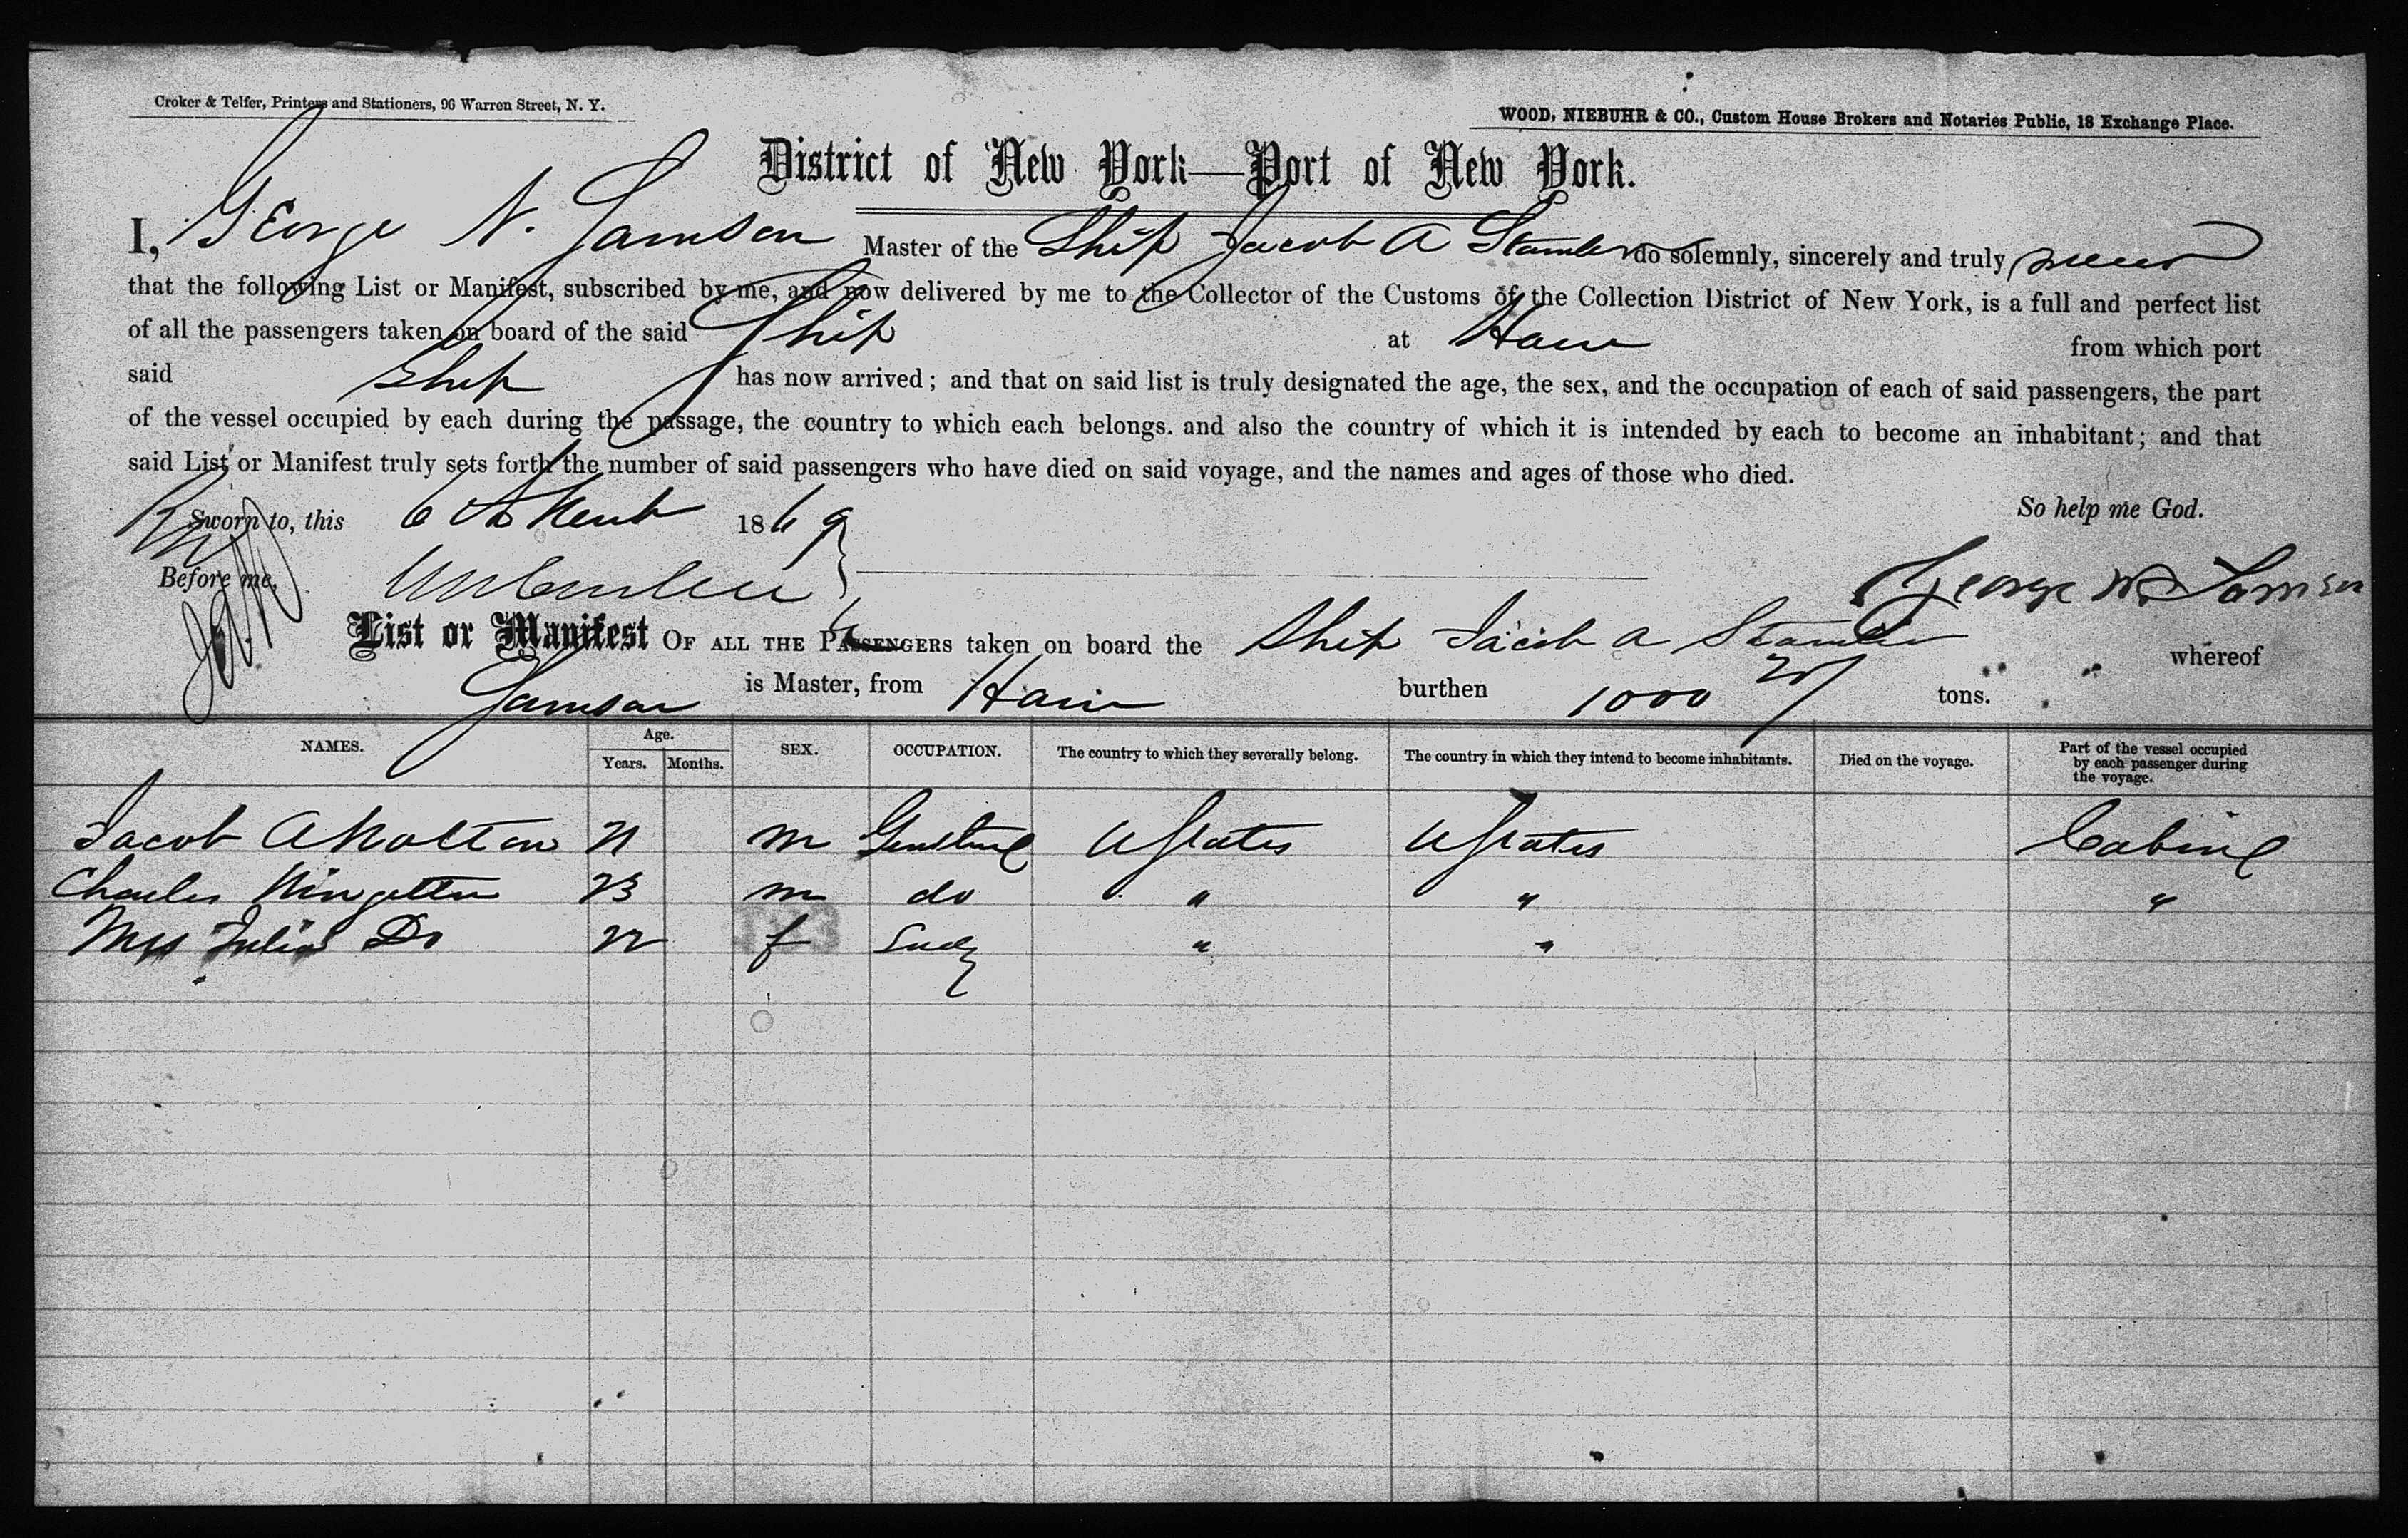 Croker & Telfer, Printers and Stationers, 96 Warren Street, N. Y.
WOOD, NIEBUHR & CO., Custom House Brokers and Notaries Public, 18 Exchange Place.
District of New York—Port of New York.
I, George N. Jamson Master of the Ship Jacob A Stamler do solemnly, sincerely and truly swear
that the following List or Manifest, subscribed by me, and now delivered by me to the Collector of the Customs of the Collection District of New York, is a full and perfect list
of all the passengers taken on board of the said Ship at Havre from which port
said Ship has now arrived; and that on said list is truly designated the age, the sex, and the occupation of each of said passengers, the part
of the vessel occupied by each during the passage, the country to which each belongs. and also the country of which it is intended by each to become an inhabitant; and that
said List or Manifest truly sets forth the number of said passengers who have died on said voyage, and the names and ages of those who died.
Sworn to, this 6th 1869 So help me God.
Before me, George
List or Manifest OF ALL THE PASSENGERS taken on board the Ship Jacob A Stamler whereof
Jamson is Master, from Havre burthen 1000 tons.
NAMES. Age. Years. Months. SEX. OCCUPATION. The country to which they severally belong. The country in which they intend to become inhabitants. Died on the voyage. Part of the vessel occupied by each passenger during the voyage.
Jacob 21 m U States U States Cabin
Charles 23 m do " " "
Mrs Julia Do 22 f Lady " "